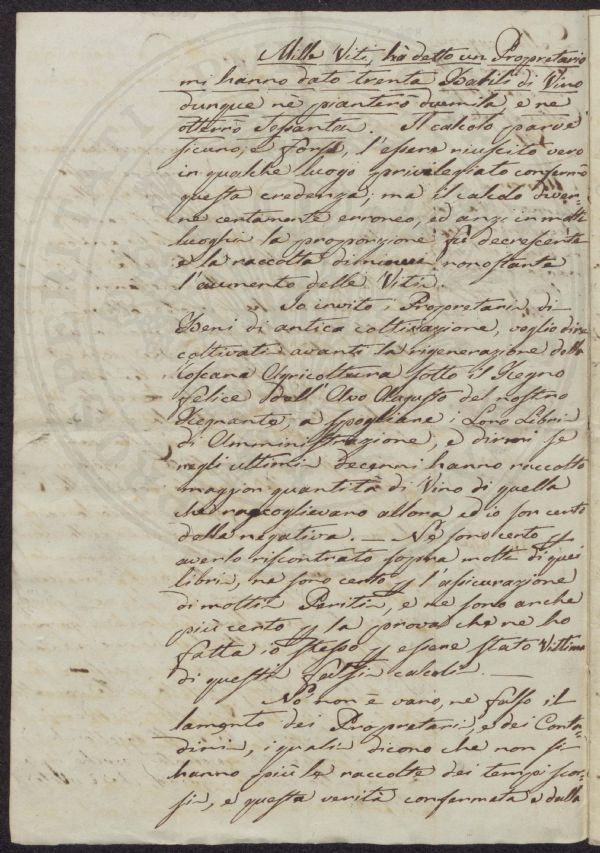 Mille Viti, ha detto un Proprietario
mi hanno dato trenta Barili di Vino
dunque nè pianterò duemila e ne
otterrò Sessanta. Il calcolo parve
sicuro, e forse, l'essere riuscito vero
in qualche luogo privilegiato confermò
questa credenza; ma il calcolo diven-
ne certamente erroneo, ed anzi in molti
luoghi la proporzione fù decrescente
e la raccolta diminuì nonostante
l'aumento delle Viti.
Io invito i Proprietari di
Beni di antica coltivazione, voglio dire
coltivati avanti la rigenerazione della
Toscana Agricoltura sotto il Regno
felice dell' Avo Augusto del nostro
Regnante, a spogliare i Loro Libri
di Amministrazione, e dirmi se
negli ultimi decenni hanno raccolto
maggior quantità di Vino di quella
che raccoglievano allora ed io son certo
della negativa. — Nè sono certo p
averlo riscontrato sopra molti di quei
libri, ne sono certo p l'assicurazione
di molti Periti, e ne sono anche
più certo p la prova che ne ho
fatta io stesso p essere stato Vittima
di questi falsi calcoli. —
Nò non è vano, ne falso il
lamento dei Proprietari, e dei Conta-
dini, i quali dicono che non si
hanno più le raccolte dei tempi scor-
si, e questa verità confermata è dalla